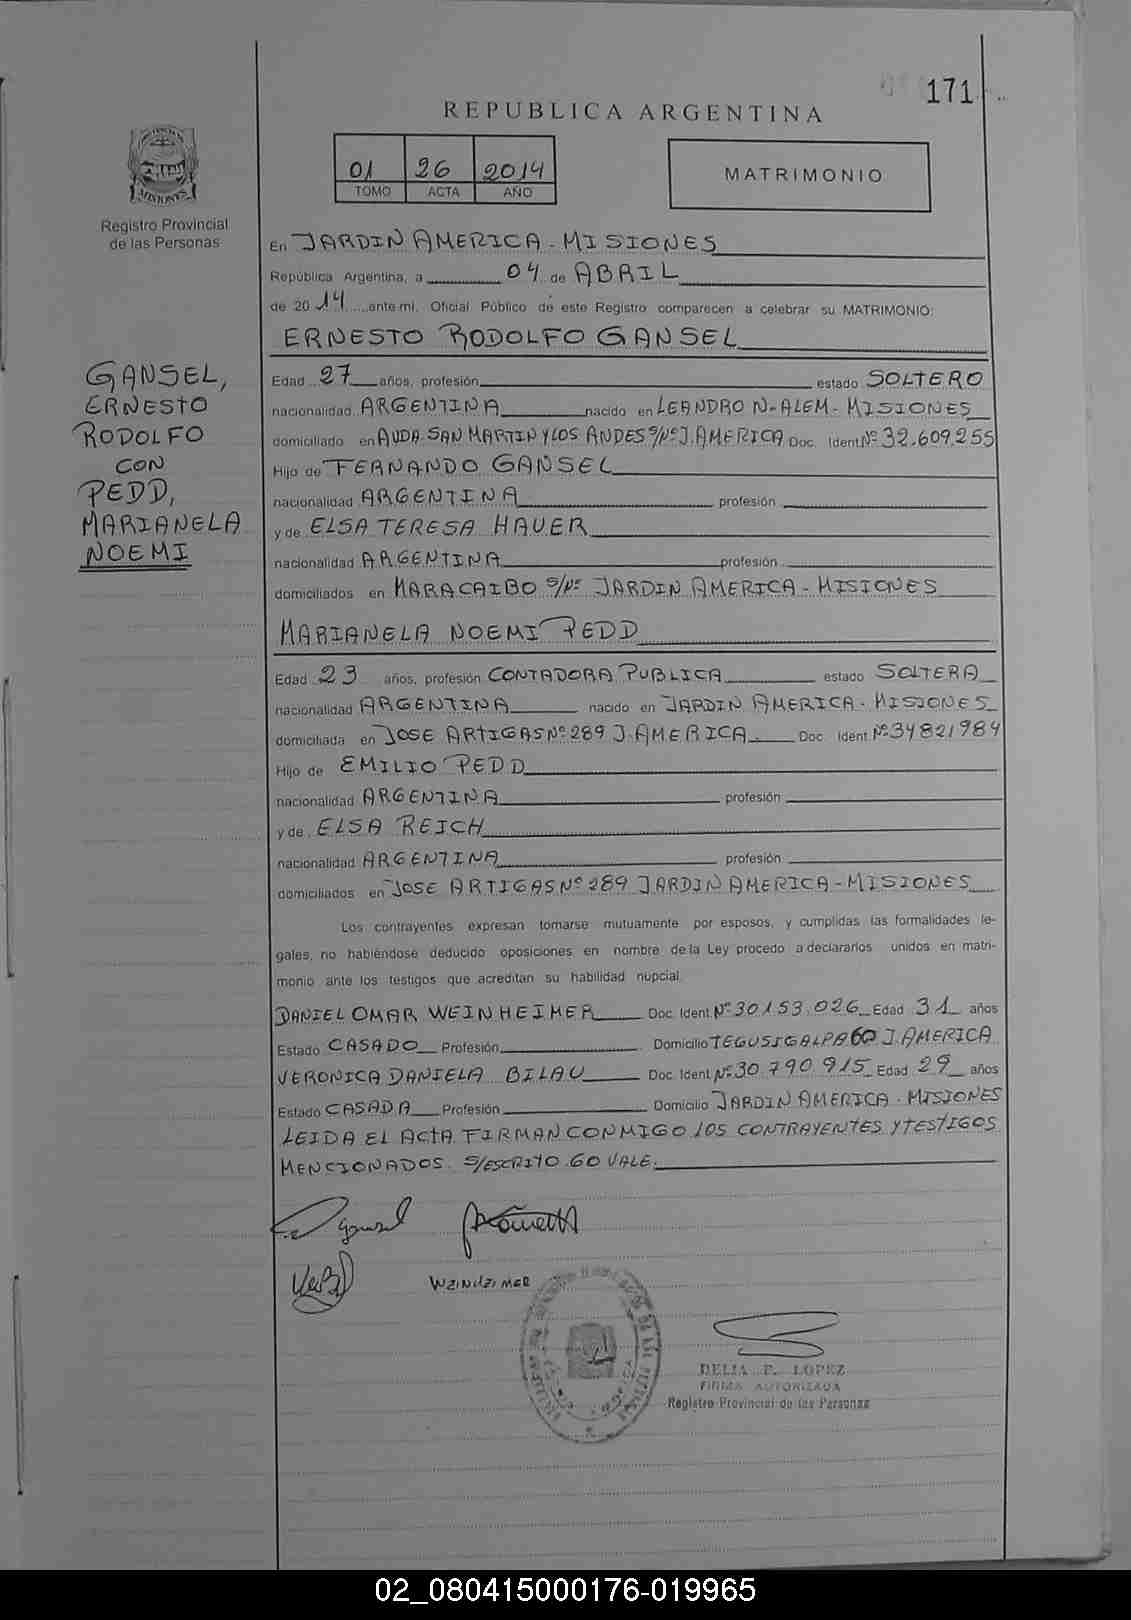 171
REPUBLICA ARGENTINA
01 26 2014
TOMO ACTA AÑO
MATRIMONIO
MISIONES
Registro Provincial
de las Personas
En JARDIN AMERICA - MISIONES
República Argentina, a 04 de ABRIL
de 2014 ante mi, Oficial Público de este Registro comparecen a celebrar su MATRIMONIO:
ERNESTO RODOLFO GANSEL
GANSEL,
ERNESTO
RODOLFO
CON
PEDD,
MARIANELA
NOEMI
Edad 27 años, profesión estado SOLTERO
nacionalidad ARGENTINA nacido en LEANDRO N-ALEM - MISIONES
domiciliado en AVDA. SAN MARTIN Y LOS ANDES S/Nº J. AMERICA Doc. Ident Nº 32.609.255
Hijo de FERNANDO GANSEL
nacionalidad ARGENTINA profesión
y de ELSA TERESA HAUER
nacionalidad ARGENTINA profesión
domiciliados en MARACAIBO S/Nº JARDIN AMERICA - MISIONES
MARIANELA NOEMI PEDD
Edad 23 años, profesión CONTADORA PUBLICA estado SOLTERA
nacionalidad ARGENTINA nacido en JARDIN AMERICA - MISIONES
domiciliada en JOSE ARTIGAS Nº 289 J. AMERICA. Doc. Ident Nº 34821984
Hijo de EMILIO PEDD
nacionalidad ARGENTINA profesión
y de ELSA REICH
nacionalidad ARGENTINA profesión
domiciliados en JOSE ARTIGAS Nº 289 JARDIN AMERICA - MISIONES
Los contrayentes expresan tomarse mutuamente por esposos, y cumplidas las formalidades le-
gales, no habiéndose deducido oposiciones en nombre de la Ley procedo a declararlos unidos en matri-
monio ante los testigos que acreditan su habilidad nupcial.
DANIEL OMAR WEINHEIMER Doc. Ident Nº 30.153.026 Edad 31 años
Estado CASADO Profesión Domicilio TEGUSIGALPA 60 J. AMERICA
VERONICA DANIELA BILAU Doc. Ident Nº 30.790.915 Edad 29 años
Estado CASADA Profesión Domicilio JARDIN AMERICA - MISIONES
LEIDA EL ACTA FIRMAN CONMIGO LOS CONTRAYENTES Y TESTIGOS
MENCIONADOS. S/ESCRITO 60 VALE.
DELIA E. LOPEZ
FIRMA AUTORIZADA
Registro Provincial de las Personas
02_080415000176-019965